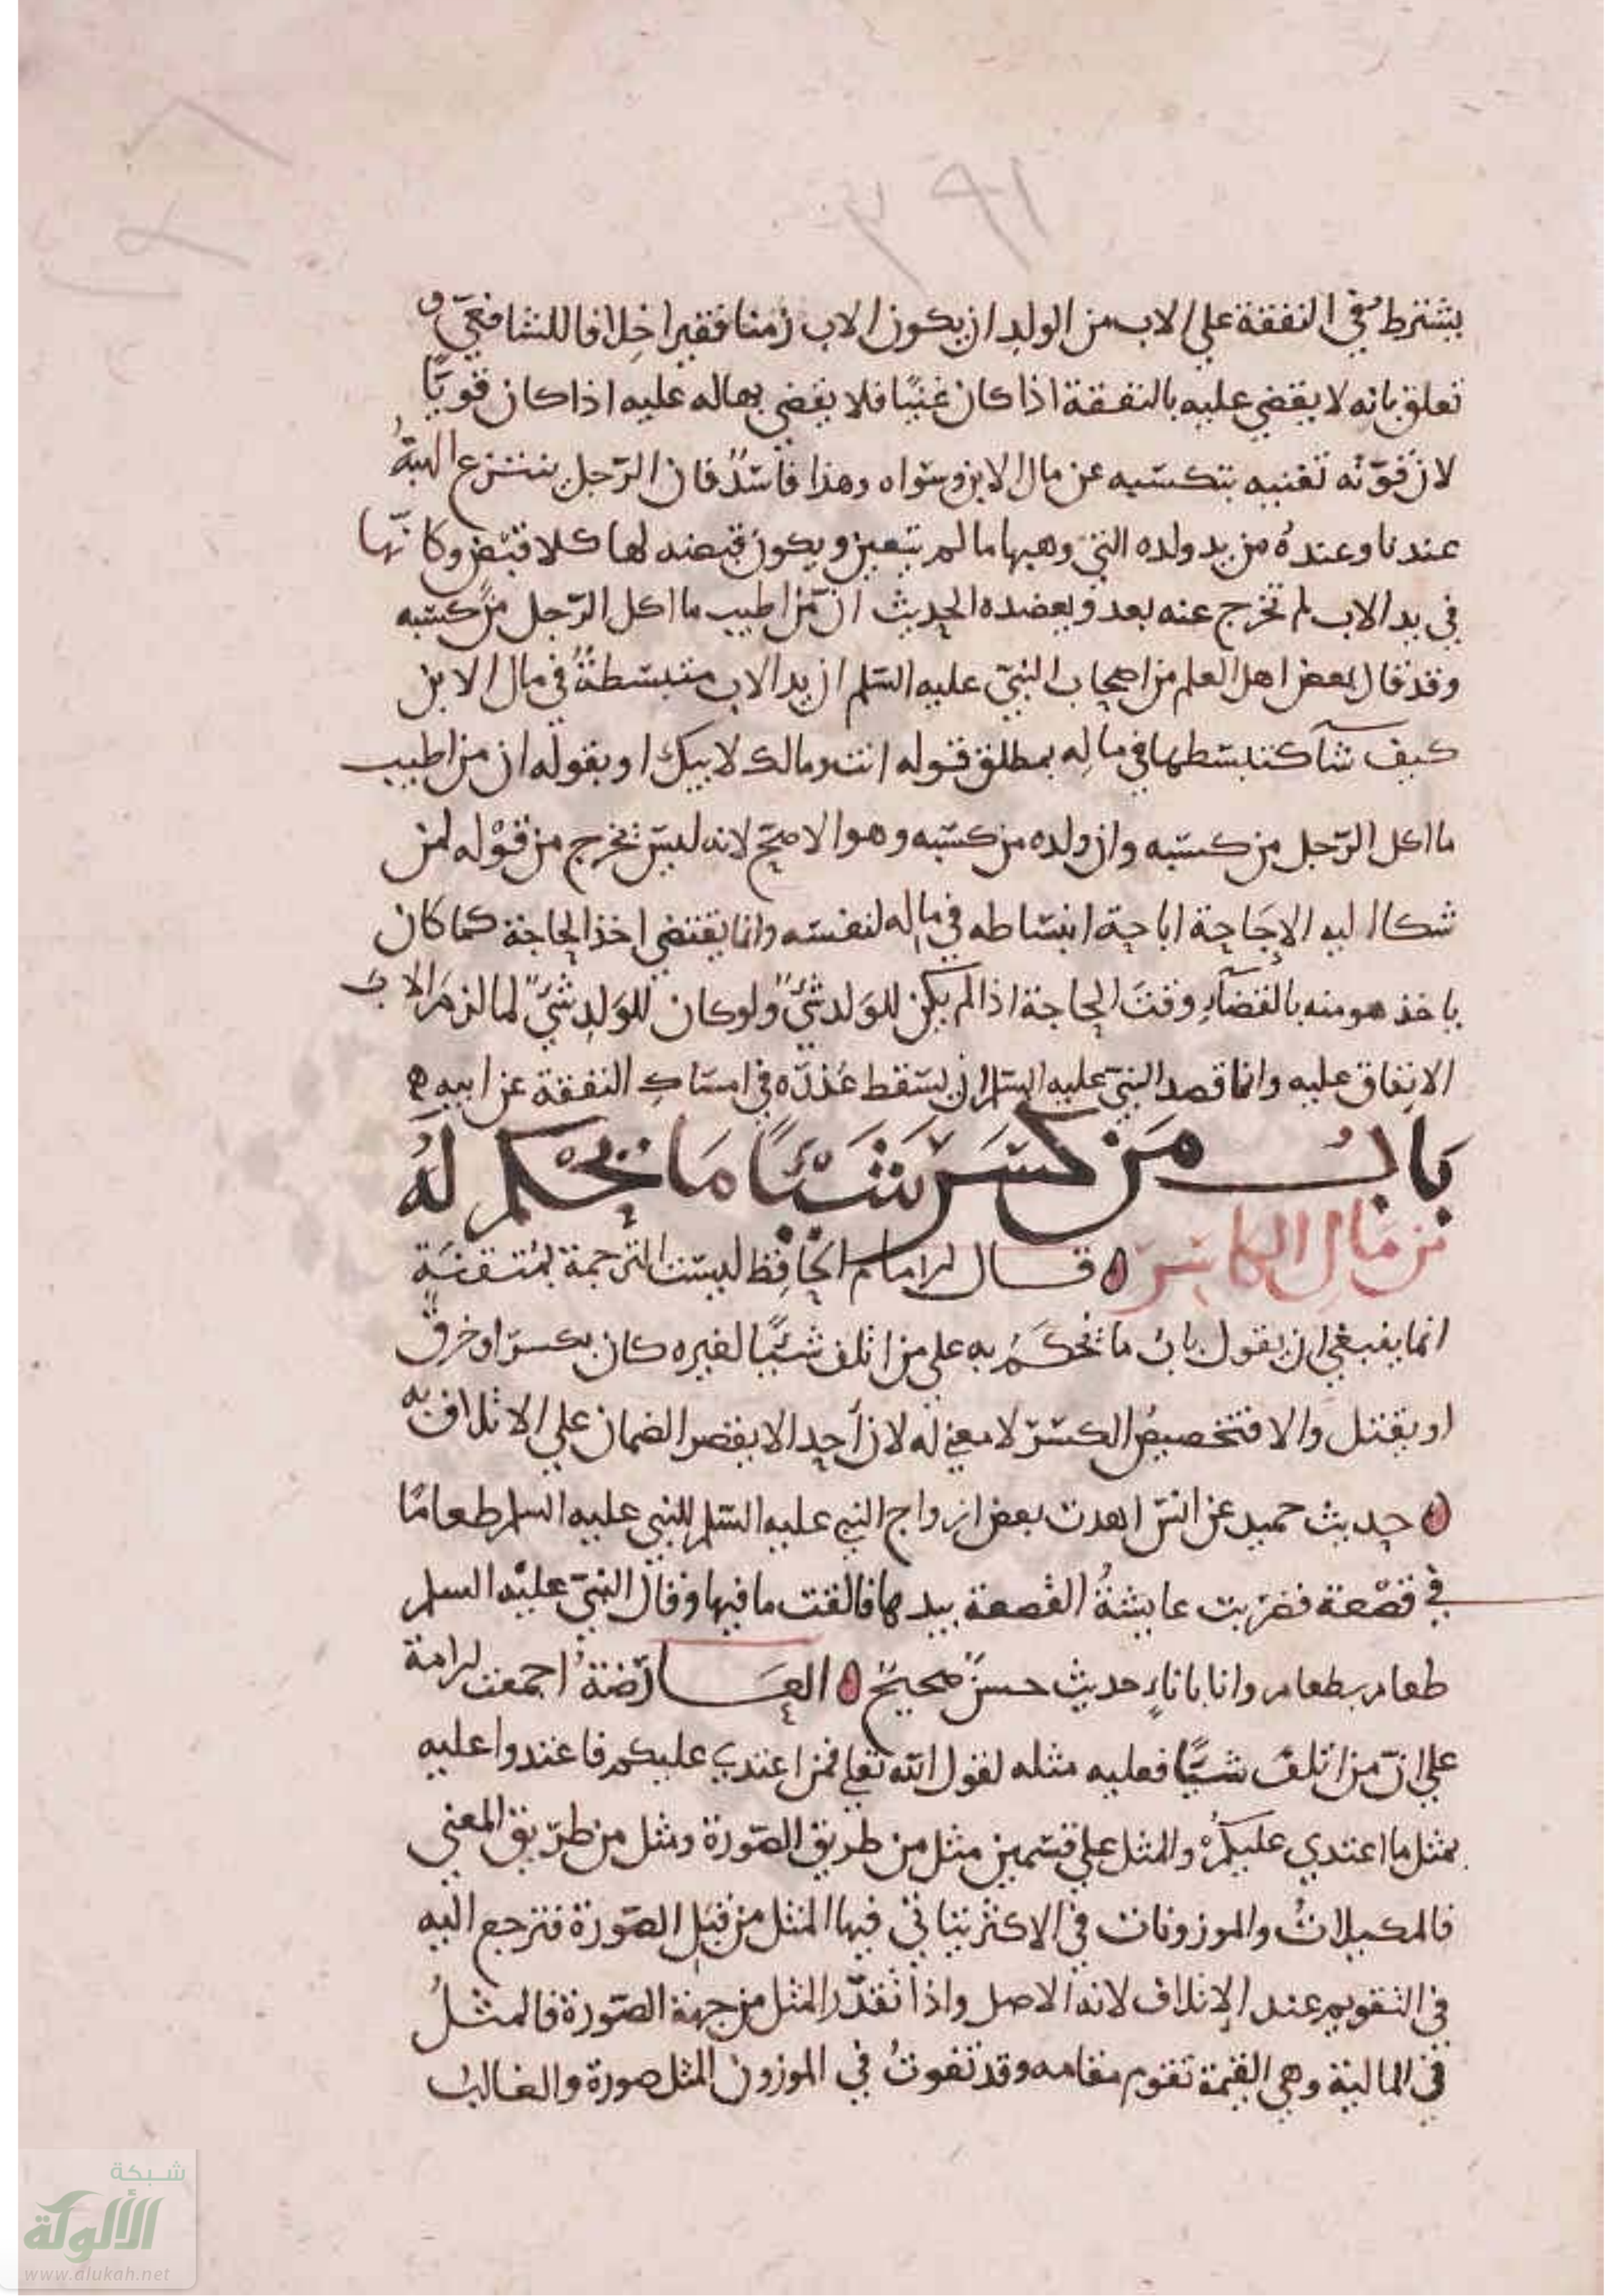 يشترط في النفقة علي الاب من الولد ان يكون الاب زمنا فقيرا خلافا للشافعي
تعلق بانه لا يقضي عليه بالنفقة اذا كان غنيًا فلا يقضي بها له عليه اذا كان قويًّا
لان قوّته تغنيه بتكسّبه عن مال الابن وسواه وهذا فاسدٌ فان الرّجل ينتزع الهبةُ
عندنا وعندهُ من يد ولده التي وهبها ما لم يتعين ويكون قبضه لها كلا قبض وكانّها
في يد الاب لم تخرج عنه بعد ويعضده الحديث انّ من اطيب ما اكل الرّجل من كسبه
وقد قال بعض اهل العلم من اصحاب النبيّ عليه السّلم ان يد الاب منبسطةٌ في مال الابن
كيف شآ كتبسّطها في ماله بمطلق قوله انت ومالك لابيك او بقوله ان من اطيب
ما اكل الرّجل من كسبه وان ولده من كسبه وهو الاصحّ لانه ليس يخرج من قوْله لمن
شكا اليه الاجاحة اباحة انبساطه في ماله لنفسه وانما يقتضي اخذ الحاجة كما كان
ياخذ هو منه بالقضآءِ وقتَ الحاجة اذا لم يكن للوَلد شيْءٌ ولو كان للوَلدِ شيْءٌ لما لزمَ الاب
الانفاق عليه وانما قصد النبيّ عليه السلم ان يسقط عُذرَه في امساكِ النفقة عن ابيه
بَابُ مَن كسَرَ شَيْئًا مَا يحْكم لهُ
من مَالِ الكاسِر قال الامام الحافظ ليست الترجمة بمُتقنَةٍ
انما ينبغي ان يقول بابُ ما يُحكَمُ به علي من اتلف شيْئًا لغيره كان بكسرٍ او خرقٍ
او بقتل والا فتخصيصُ الكسرِ لا معنى له لان أحدا لا يقصر الضمان علي الاتلاف به
حديث حميد عن انس اهدت بعض ازواج النبي عليه السّلم للنبي عليه السلم طعامًا
في قصْعة فضربت عايشةُ القصعة بيدها فالقت ما فيها وقال النبيّ عليه السلم
طعام بطعام وانا باناءٍ حديث حسنٌ صحيحٌ العَارضَةُ اجمعت الامة
علي انّ من اتلف شيئًا فعليه مثله لقول الله تعلي فمن اعتدي عليكم فاعتدوا عليه
بمثل ما اعتدي عليكمْ والمثل علي قسْمين مثل من طريق الصّورة ومثل من طريق المعني
فالمكيلاتُ والموزونات في الاكثر يتاتي فيها المثل من قبَلِ الصّورة فترجع اليه
في التقويم عند الإتلاف لانه الاصل واذا تعذّر المثل من جهة الصّورة فالمثلُ
في المالية وهي القيمة تقوم مقامه وقد تفوتُ في الموزون المثل صورة والغالبُ
شبكة
الألوكة
www.alukah.net